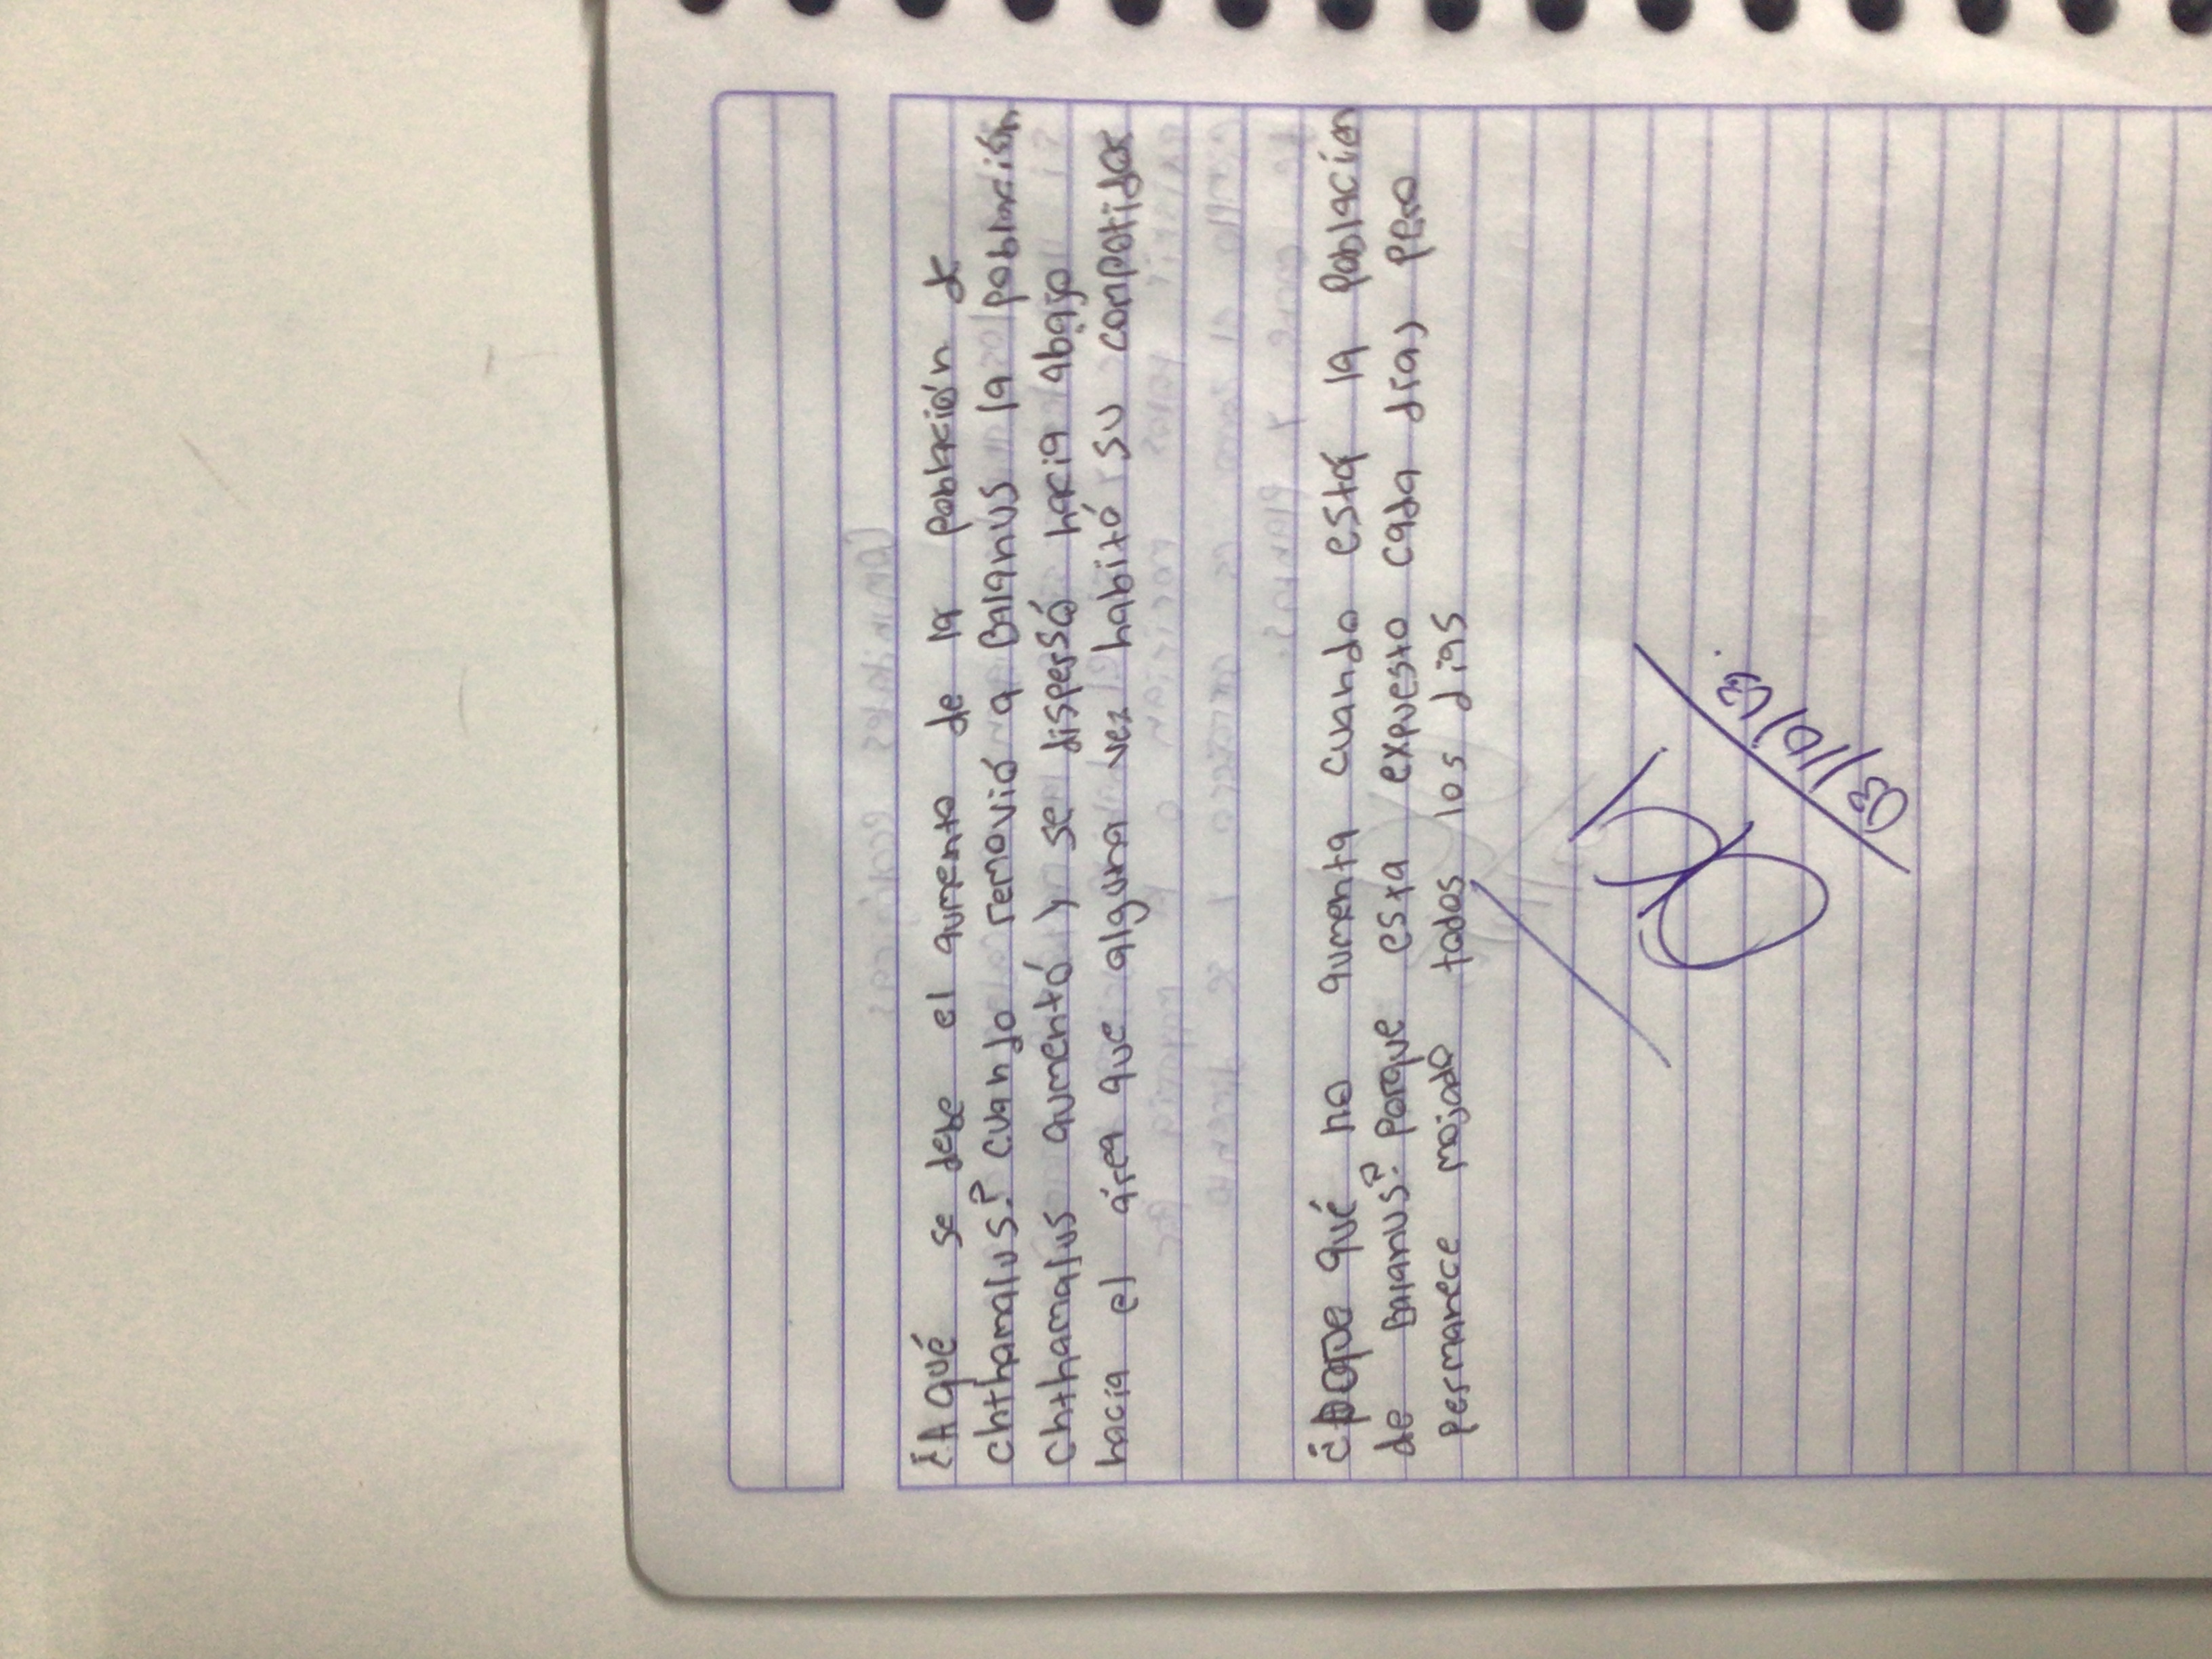 ¿A qué se debe el aumento de la población de
chthamalus? cuando removió a Balanus la población
chthamalus aumentó y se dispersó hacia abajo
hacia el área que alguna vez habitó su competidor
¿Porque qué no aumenta cuando está la poblacion
de Balanus? Porque esta expuesto cada dia, pero
permanece mojado todos los dias
03/10/